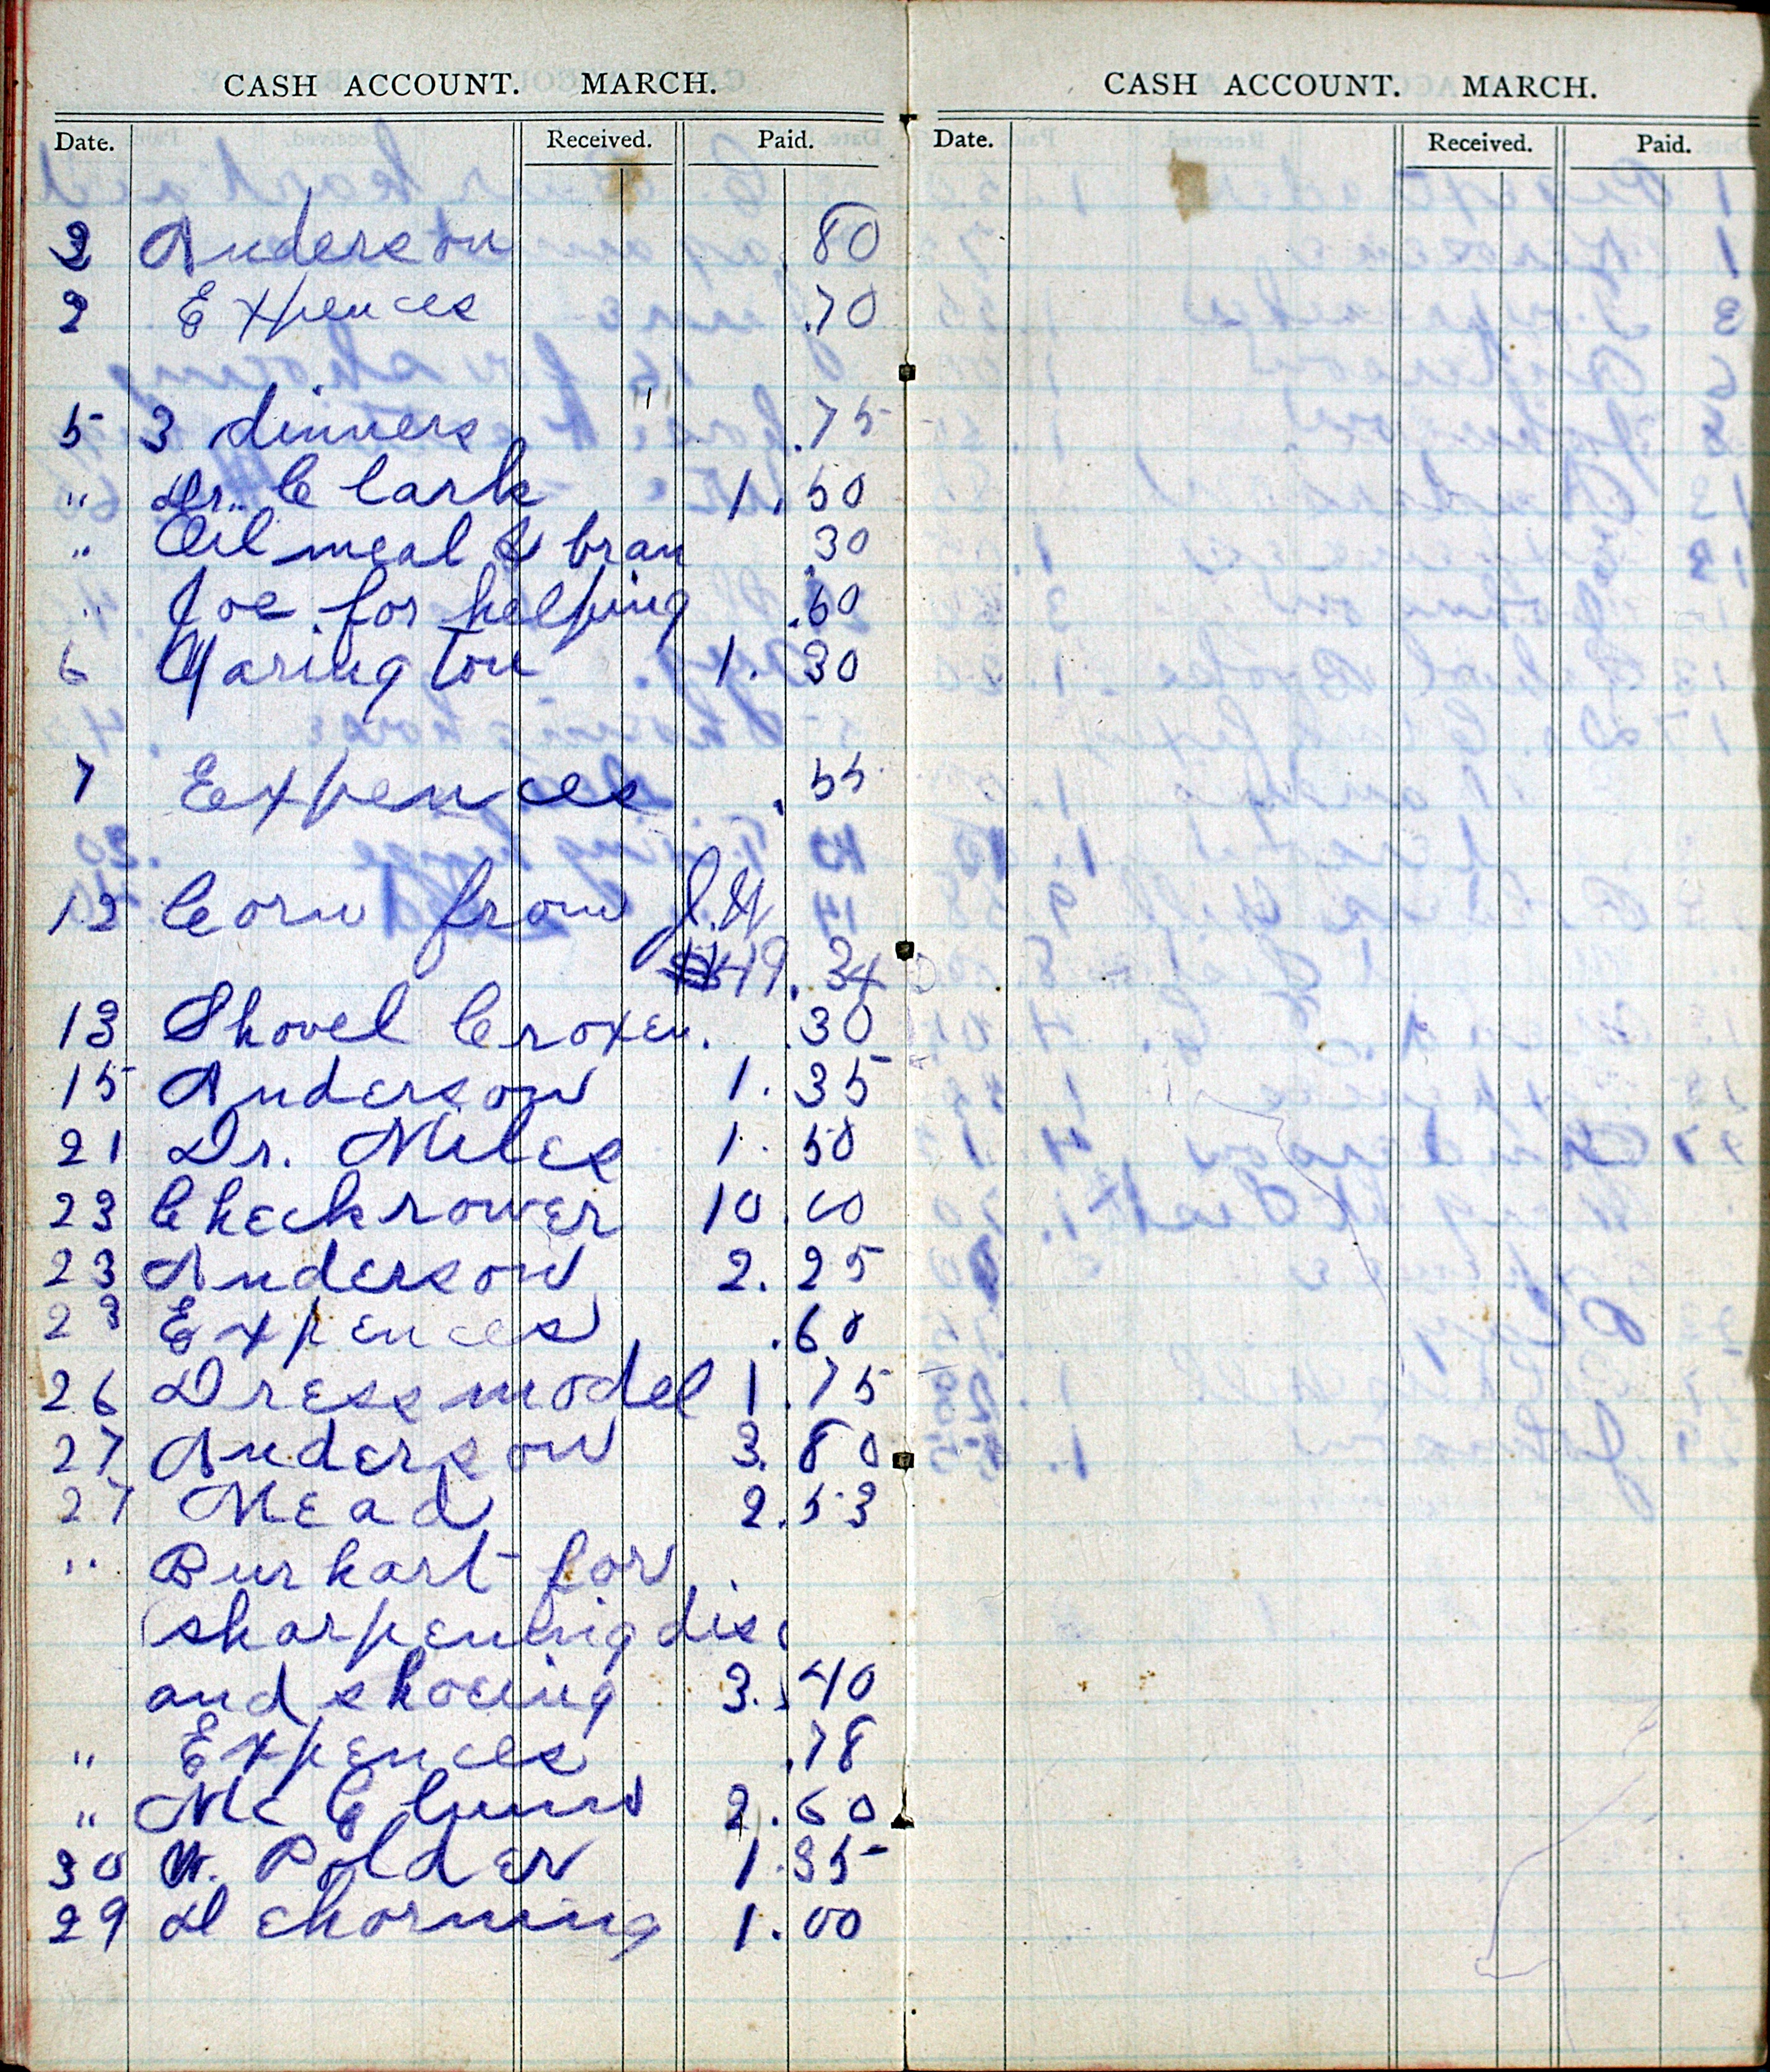 CASH ACCOUNT. MARCH.
Date. Received. Paid.
2 Anderson .80
2 Expences .70
5 3 dinners .75
" Dr. Clark 1.50
" Oil meal & bran .30
" Joe for helping .60
6 Yarington 1.30
7 Expences .55
12 Corn from J.H.
19.34
13 Shovel Croxen. .30
15 Anderson 1.35
21 Dr. Miles 1.50
23 Checkrower 10.00
23 Anderson 2.25
23 Expences .60
26 Dress model 1.75
27 Anderson 3.80
27 Mead 2.53
" Burkart for
sharpening disc
and shoeing 3.40
" Expences .78
" Mc 2.60
30 W. Polder 1.35
29 D chorning 1.00
CASH ACCOUNT. MARCH.
Date. Received. Paid.